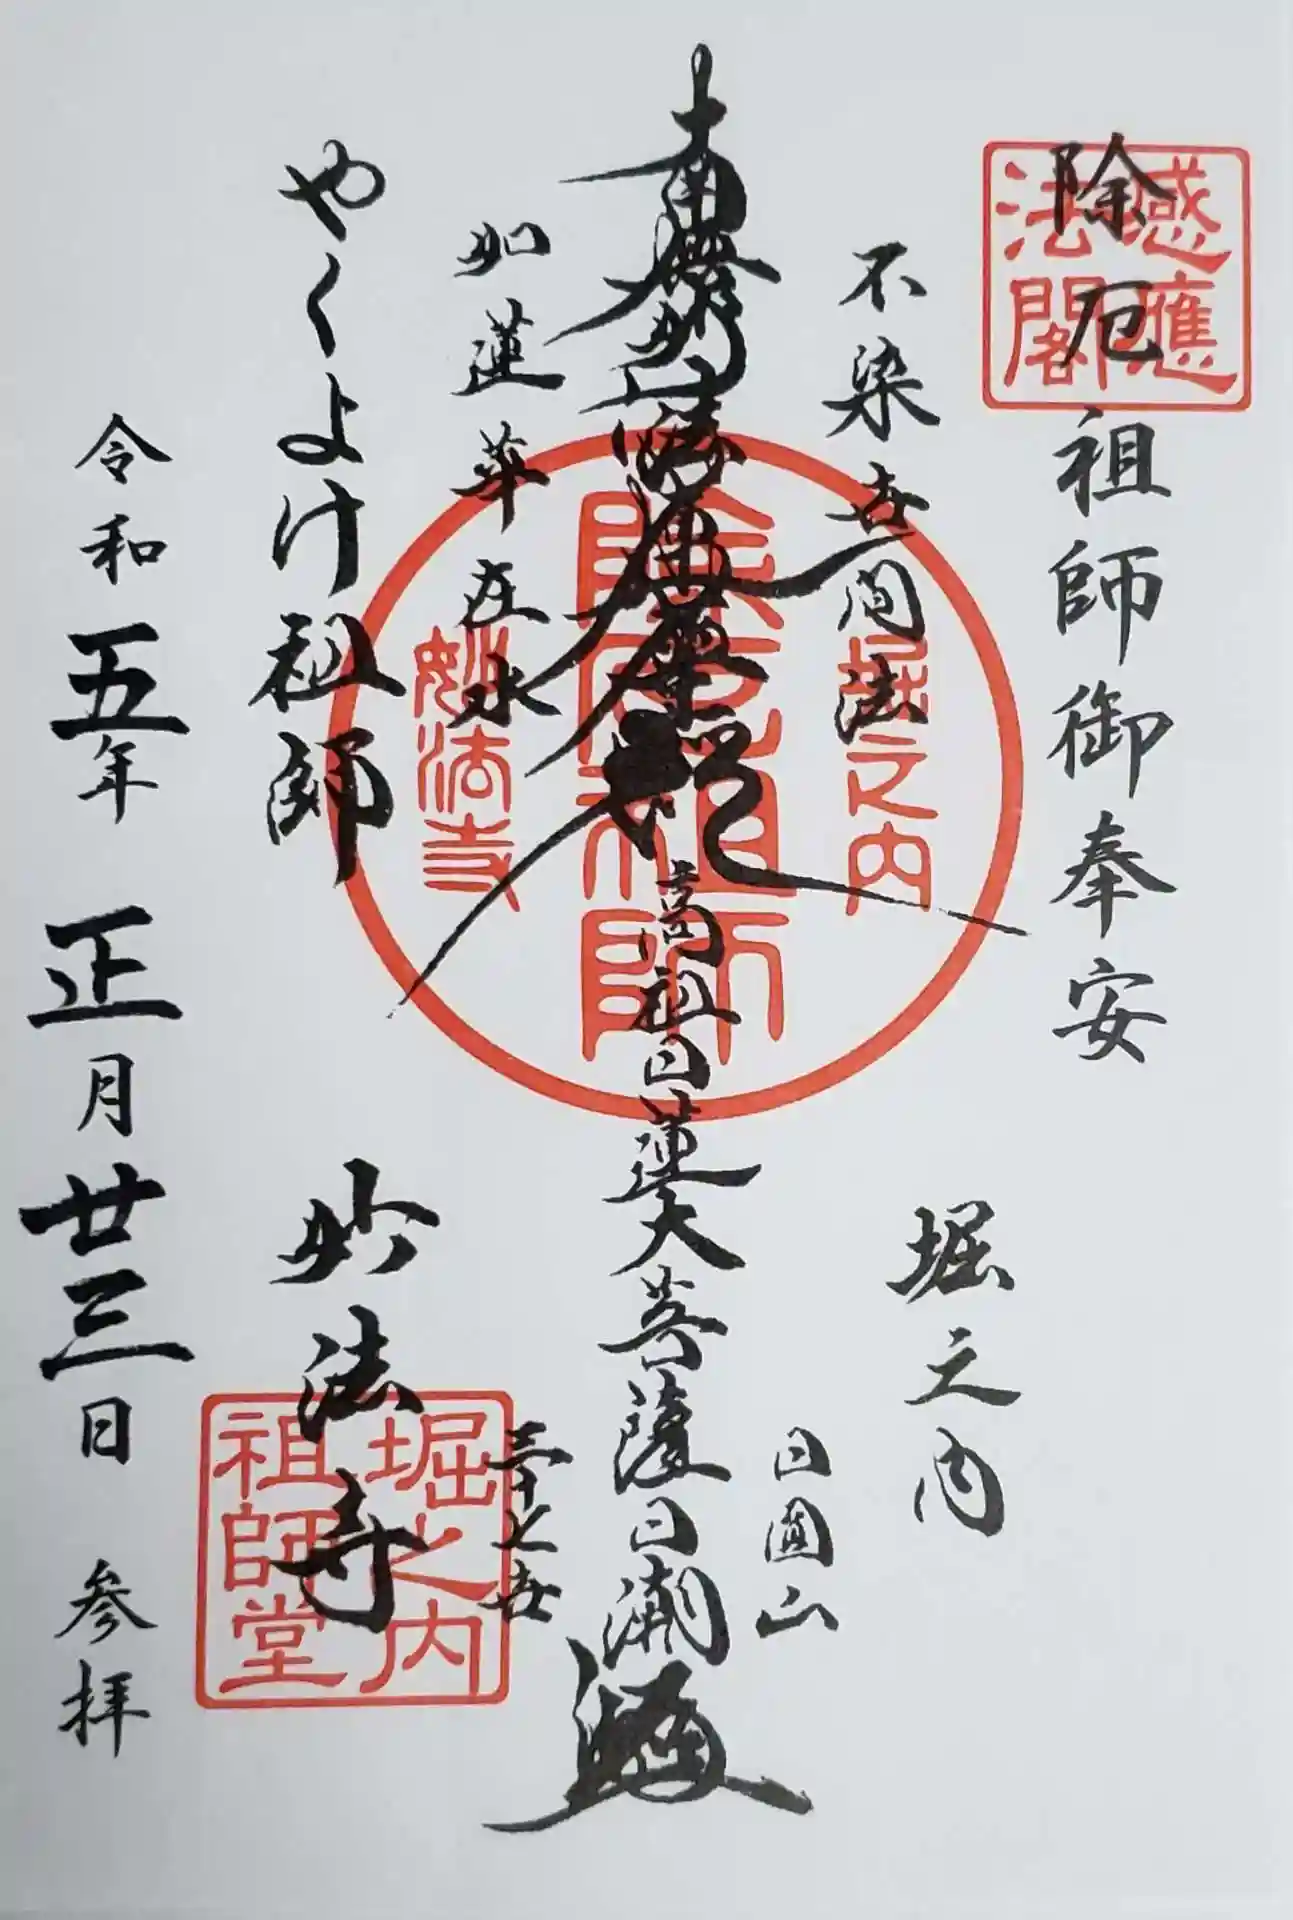 感應法閣
除厄祖師御奉安
堀之内
不染世間法
日圓山
堀之内
除厄祖師
妙法寺
南無妙法蓮華経
高祖日蓮大菩薩
日潮
如蓮華在水
三十七世
やくよけ祖師
妙法寺
堀之内祖師堂
令和五年正月廿三日参拝